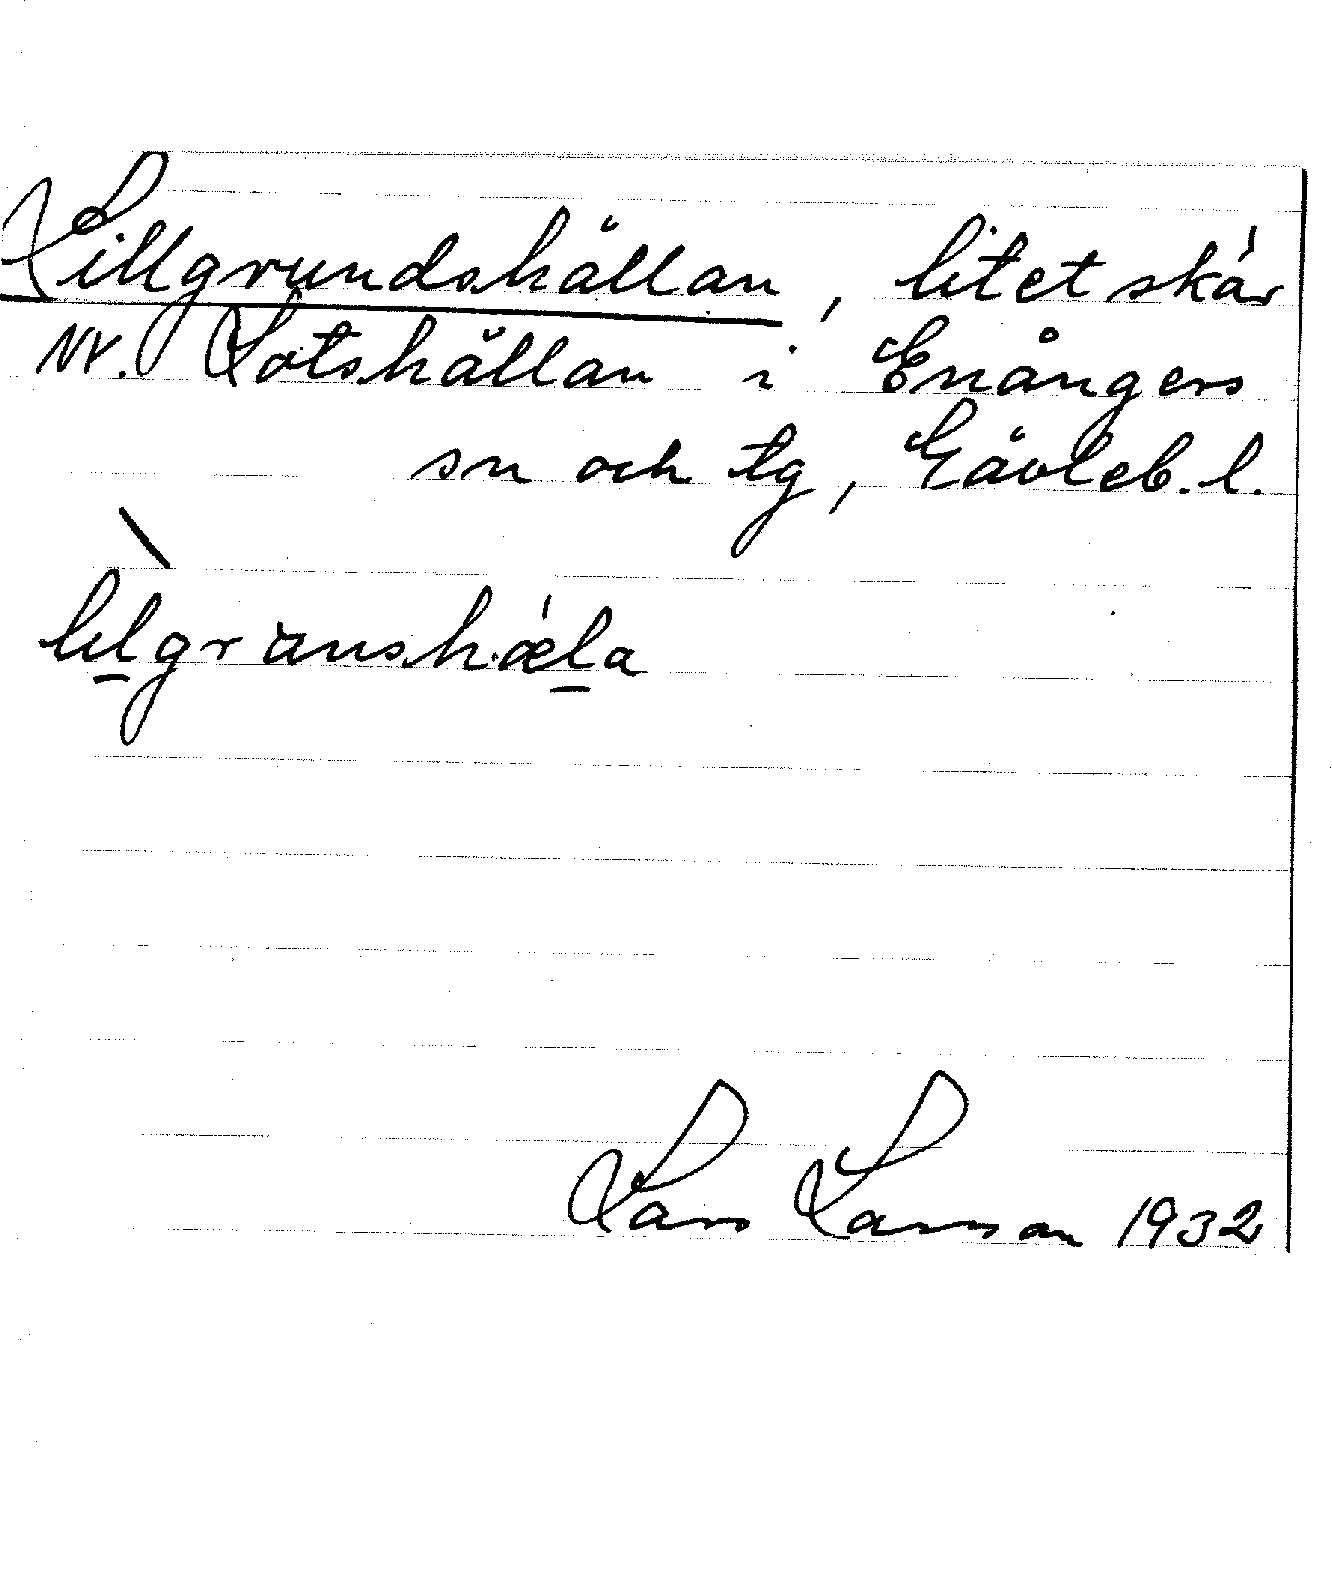 Lillgrundshällan, litet skär
NV. Lotshällan i Enångers
sn och tg, Gävleb. l.
lilgränshæla
Lars Larsson 1932